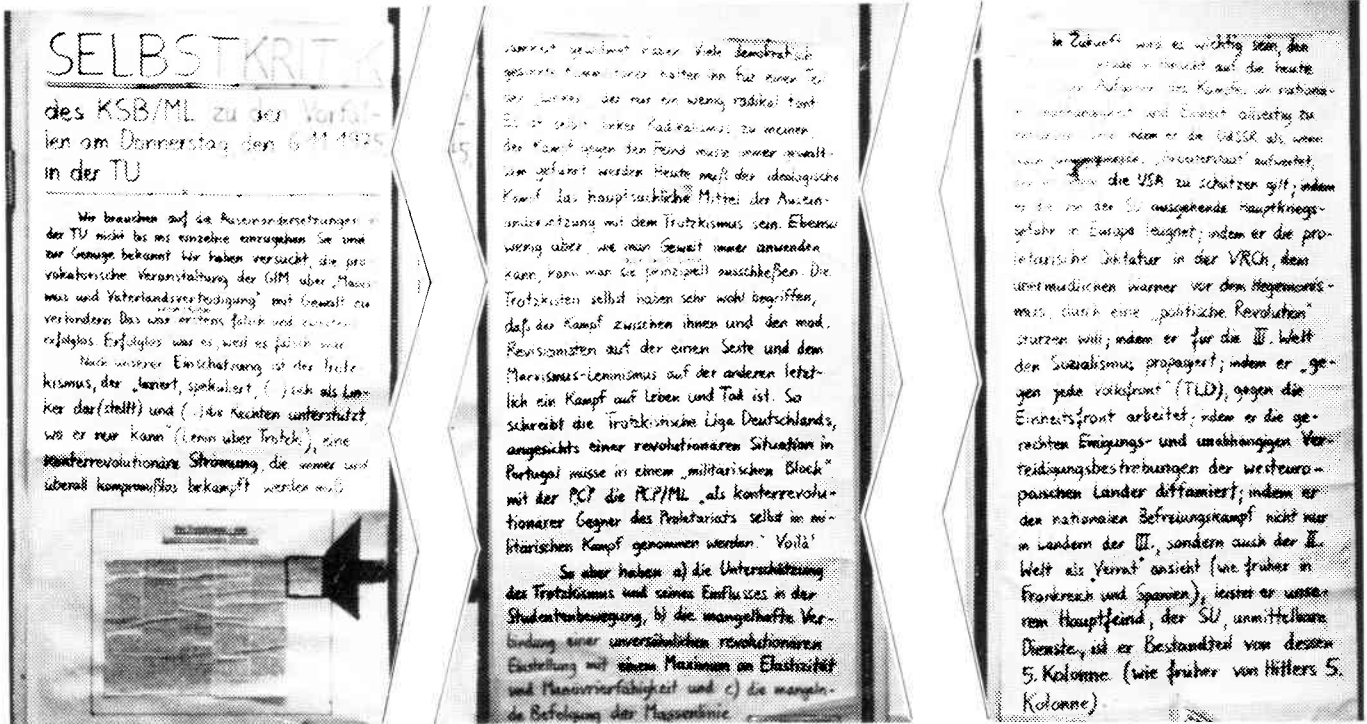 SELBSTKRITIK
des KSB/ML zu den Vorfäl-
len am Donnerstag, den 6.11.1975,
in der TU
Wir brauchen auf die Auseinandersetzungen in
der TU nicht bis ins einzelne einzugehen. Sie sind
zur Genüge bekannt. Wir haben versucht, die pro-
vokatorische Veranstaltung der GIM über „Maois-
mus und Vaterlandsverteidigung" mit Gewalt zu
verhindern. Das war erstens falsch und zweitens
erfolglos. Erfolglos war es, weil es falsch war.
Nach unserer Einschätzung ist der Trotz-
kismus, der „laviert, spekuliert, (..) sich als Lin-
ker dar(stellt) und (..) die Rechten unterstützt,
wo er nur kann" (Lenin über Trotzki), eine
konterrevolutionäre Strömung, die immer und
überall kompromißlos bekämpft werden muß
gewidmet haben. Viele demokratisch
gesinnte Kommilitonen halten ihn für einen Teil
der „Linken", der nur ein wenig radikal tönt.
Es ist selbst linker Radikalismus zu meinen,
der Kampf gegen den Feind müsse immer gewalt-
sam geführt werden. Heute muß der ideologische
Kampf das hauptsächliche Mittel der Ausein-
andersetzung mit dem Trotzkismus sein. Ebenso
wenig aber, wie man Gewalt immer anwenden
kann, kann man sie prinzipiell ausschließen. Die
Trotzkisten selbst haben sehr wohl begriffen,
daß der Kampf zwischen ihnen und den mod.
Revisionisten auf der einen Seite und dem
Marxismus-Leninismus auf der anderen letzt-
lich ein Kampf auf Leben und Tod ist. So
schreibt die Trotzkistische Liga Deutschlands,
angesichts einer revolutionären Situation in
Portugal müsse in einem „militärischen Block"
mit der PCP die PCP/ML „als konterrevolu-
tionärer Gegner des Proletariats selbst in mi-
litärischen Kampf genommen werden." Voilà!
So aber haben a) die Unterschätzung
des Trotzkismus und seines Einflusses in der
Studentenbewegung, b) die mangelhafte Ver-
bindung einer unversöhnlichen revolutionären
Einstellung mit einem Maximum an Elastizität
und Manövrierfähigkeit und c) die mangeln-
de Befolgung der Massenlinie
In Zukunft wird es wichtig sein, den
in Hinsicht auf die heute
Aufgaben des Kampfes um nationa-
Unabhängigkeit und Einheit allseitig zu
indem er die UdSSR als, wenn
„Arbeiterstaat" aufwertet,
die USA zu schützen gilt; indem
er die von der SU ausgehende Hauptkriegs-
gefahr in Europa leugnet; indem er die pro-
letarische Diktatur in der VRCh, dem
unermüdlichen Warner vor dem Hegemonis-
mus, durch eine „politische Revolution"
stürzen will; indem er für die III. Welt
den Sozialismus propagiert; indem er „ge-
gen jede Volksfront" (TLD), gegen die
Einheitsfront arbeitet; indem er die ge-
rechten Einigungs- und unabhängigen Ver-
teidigungsbestrebungen der westeuro-
päischen Länder diffamiert; indem er
den nationalen Befreiungskampf nicht nur
in Ländern der III., sondern auch der II.
Welt als „Verrat" ansieht (wie früher in
Frankreich und Spanien), leistet er unse-
rem Hauptfeind, der SU, unmittelbare
Dienste, ist er Bestandteil von dessen
5. Kolonne (wie früher von Hitlers 5.
Kolonne).